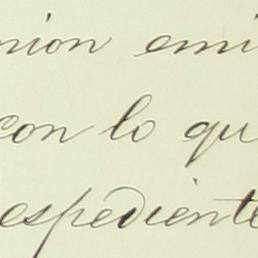 nion emi
con lo qu
espediente